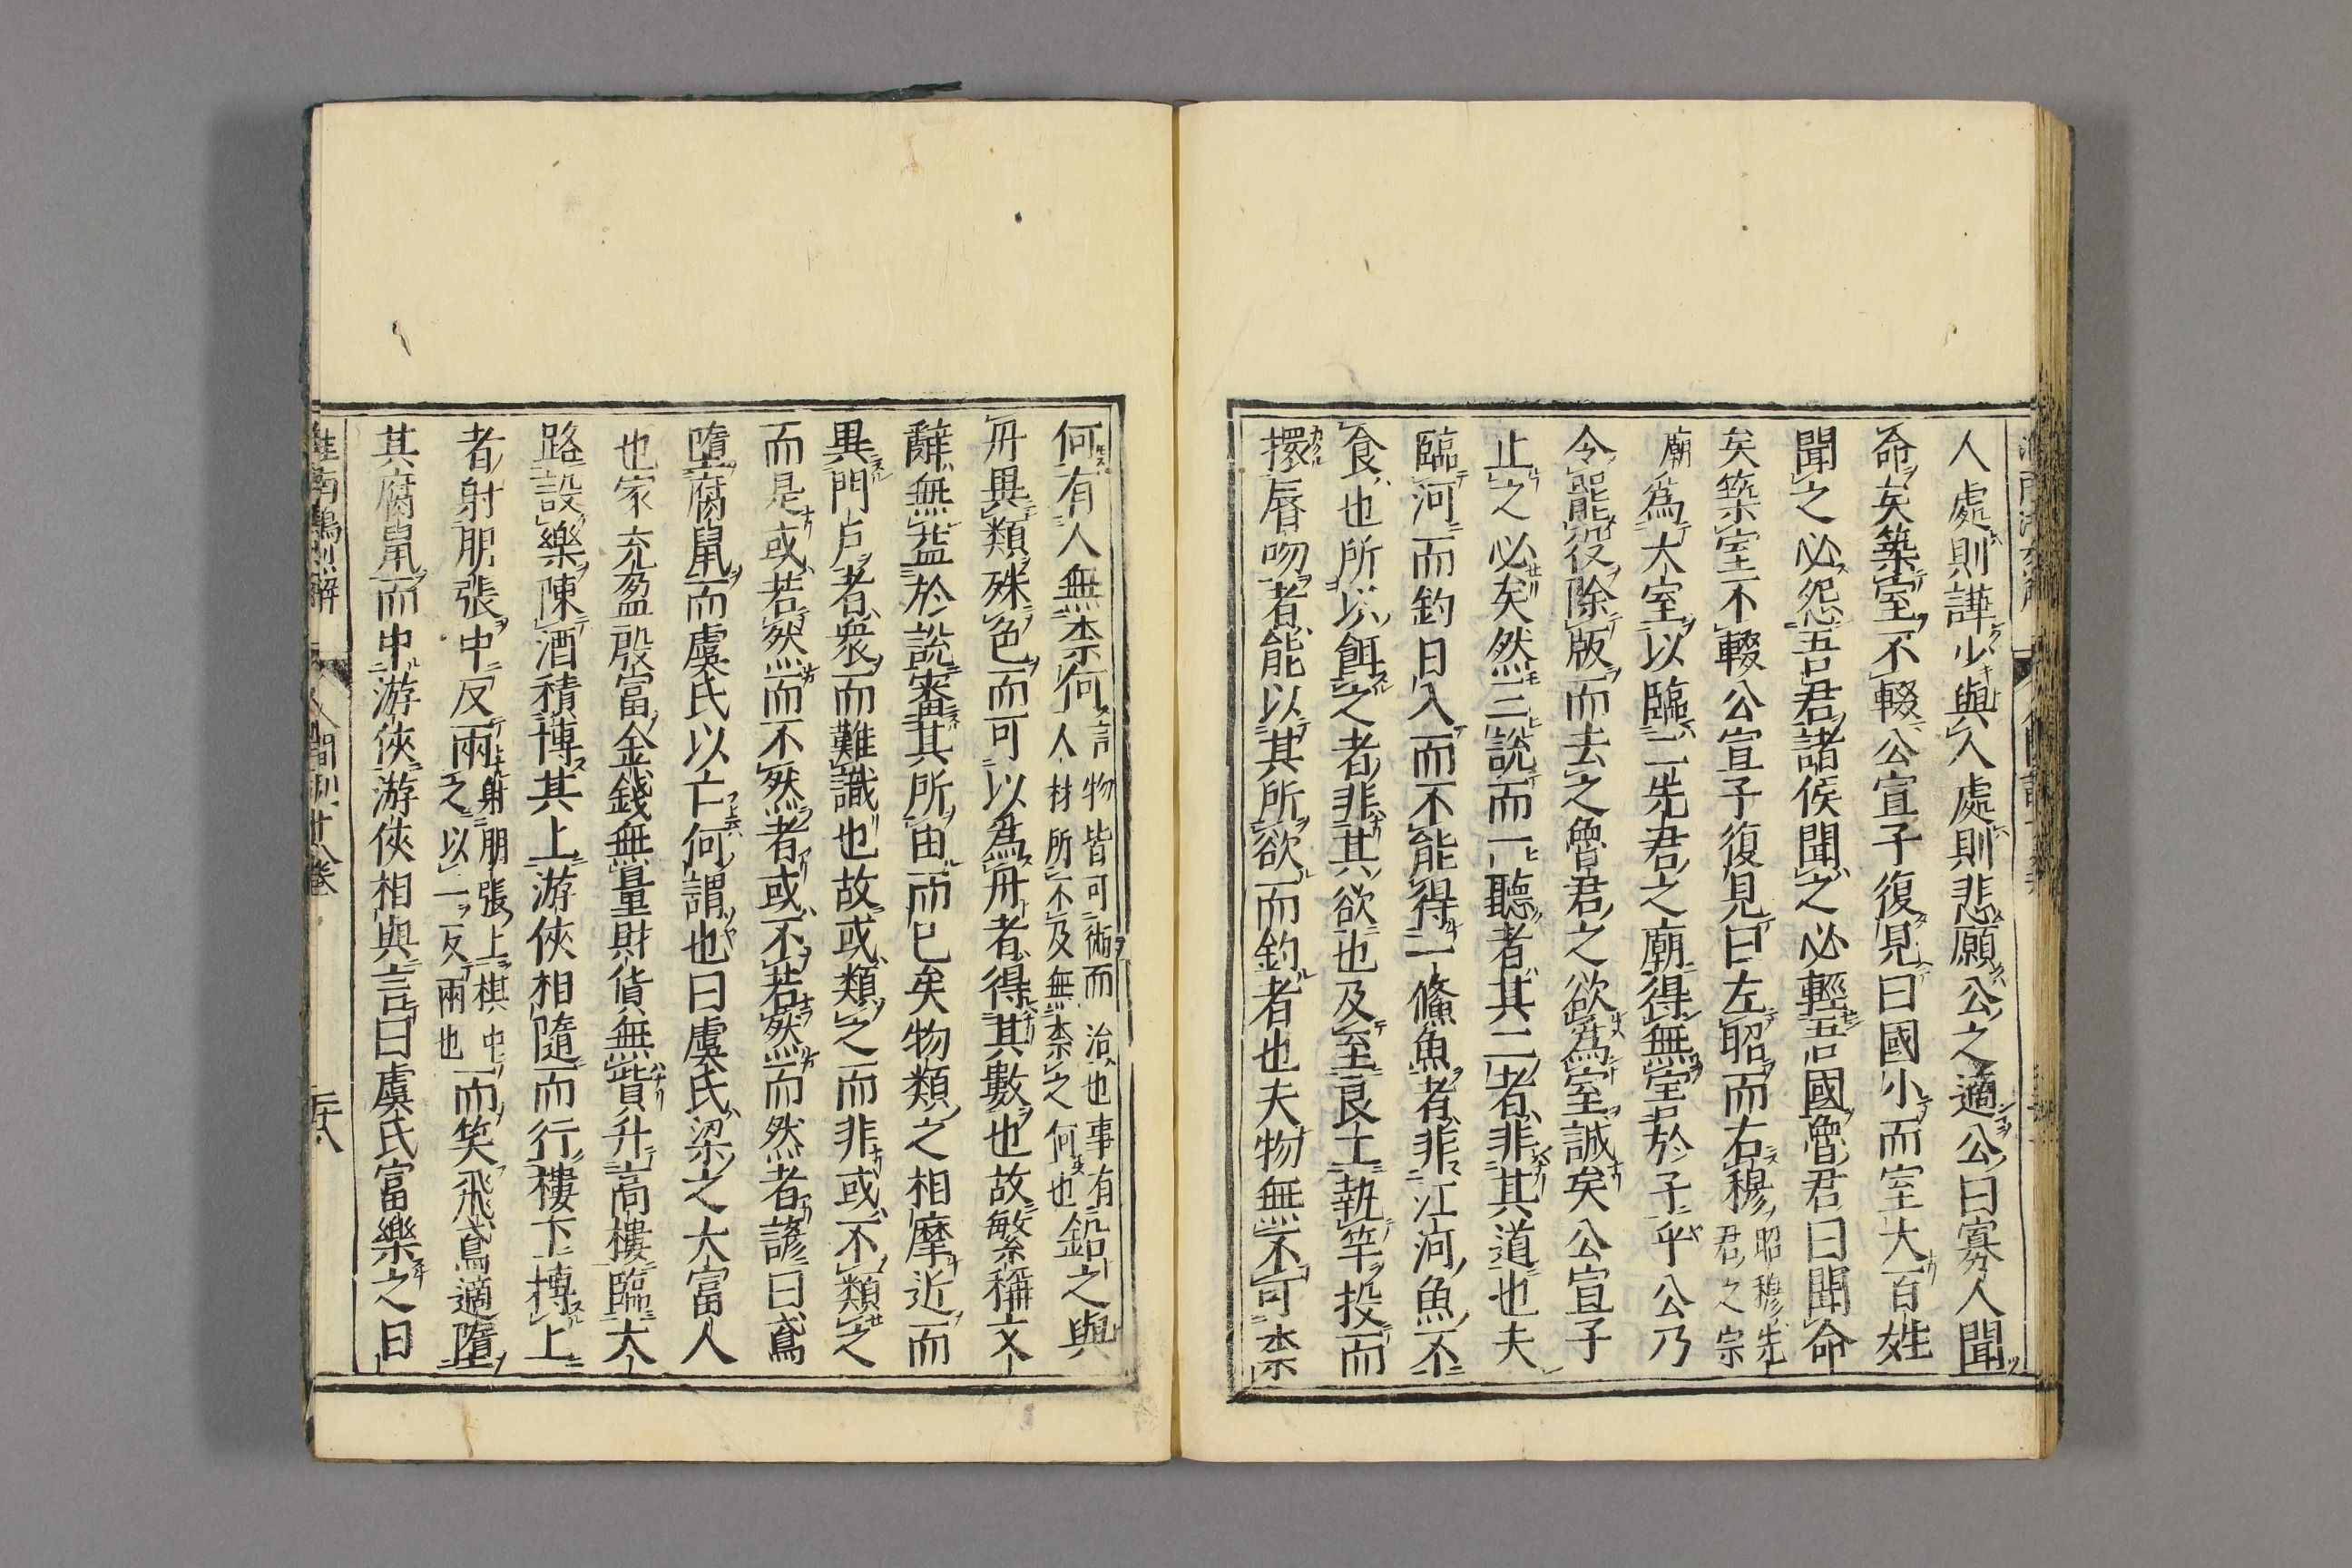 人處則譁少與人處則悲願公之適公曰寡人聞
命矣築室不輟公宣子復見曰國小而室大百姓
聞之必怨吾君諸侯聞之必輕吾國魯君曰聞命
矣築室不輟公宣子復見曰左昭而右穆昭穆先君之宗
廟爲大室以臨二先君之廟得無害於子乎公乃
令罷役除版而去之魯君之欲爲室誠矣公宣子
止之必矣然三說而一聽者其二者非其道也夫
臨河而釣日入而不能得一鯈魚者非江河魚不
食也所以餌之者非其欲也及至良工執竿投而
擐脣吻者能以其所欲而釣者也夫物無不可柰
何有人無柰何言物皆可術而治也事有人材所不及無柰之何也鉛之與
丹異類殊色而可以爲丹者得其數也故繁稱文
辭無益於說審其所由而已矣物類之相摩近而
異門戶者衆而難識也故或類之而非或不類之
而是或若然而不然者或不若然而然者諺曰鳶
墮腐鼠而虞氏以亡何謂也曰虞氏梁之大富人
也家充盈殷富金錢無量財貨無貲升高樓臨大
路設樂陳酒積博其上游俠相隨而行樓下博上
者射朋張中反兩射朋張上棋中之以一反兩也而笑飛鳶適墮
其腐鼠而中游俠游俠相與言曰虞氏富樂之日
淮南鴻烈解 人間訓廿八卷 三十八